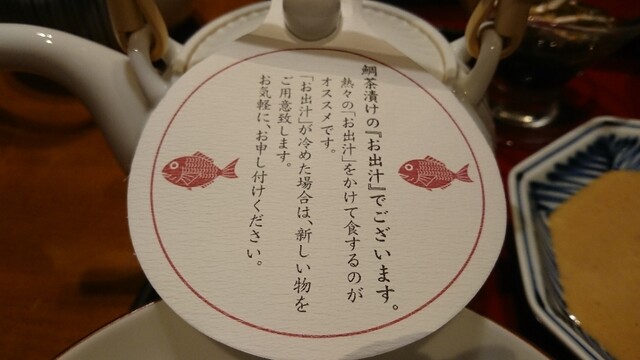 鯛茶漬けの『お出汁』でございます。
熱々の「お出汁」をかけて食するのが
オススメです。
「お出汁」が冷めた場合は、新しい物を
ご用意致します。
お気軽に、お申し付けください。